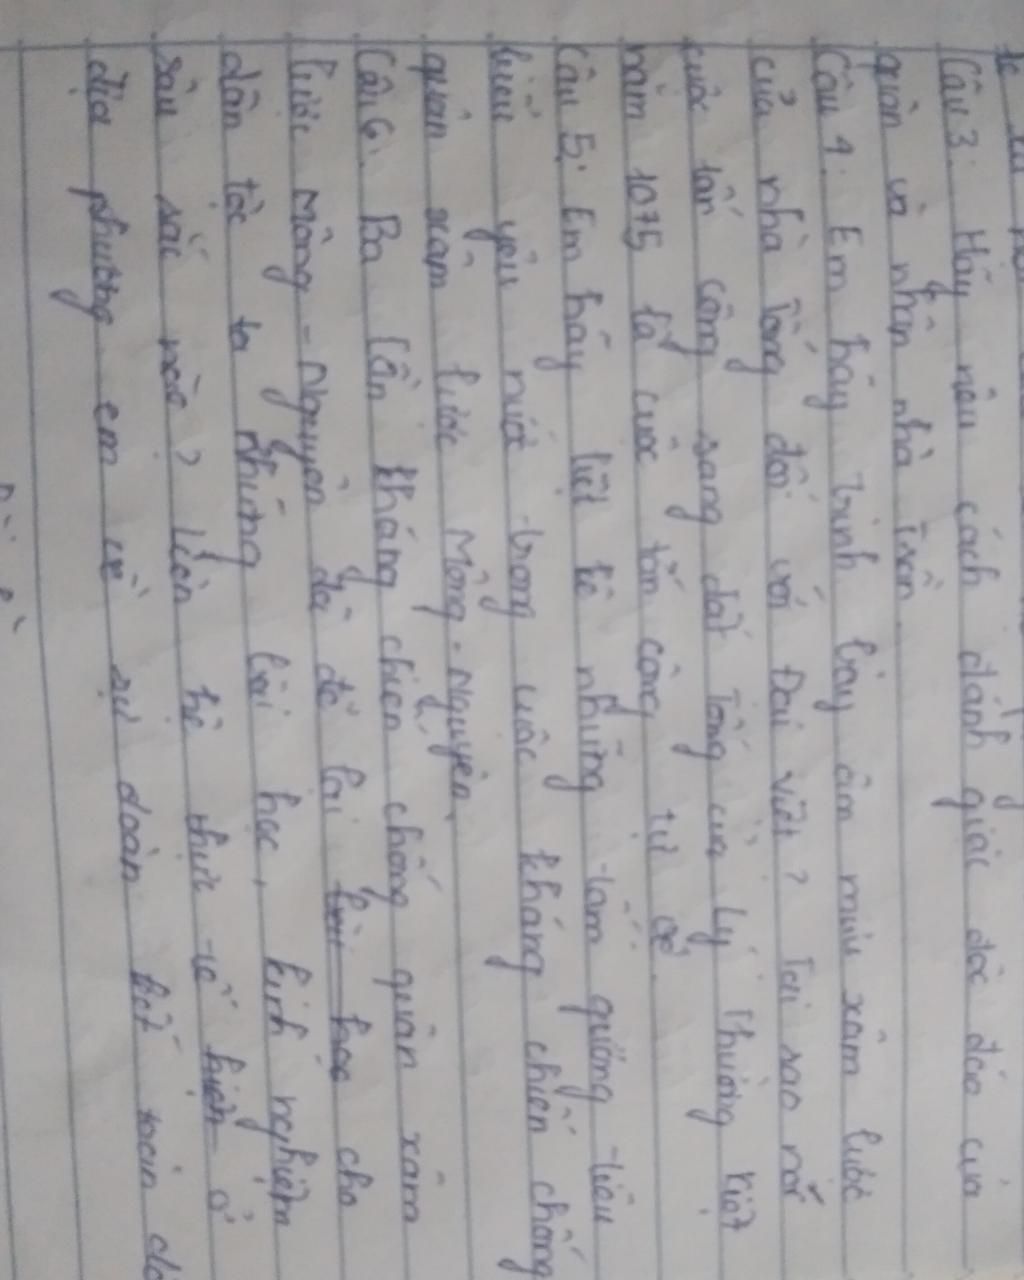 Câu 3: Hãy nêu cách đánh giặc độc đáo của
quân và nhân nhà Trần.
Câu 4: Em hãy trình bày âm mưu xâm lược
của nhà Tống đối với Đại Việt? Tại sao nói
cuộc tấn công sang đất Tống của Lý Thường Kiệt
năm 1075 là cuộc tấn công tự vệ.
Câu 5: Em hãy liệt kê những tấm gương tiêu
biểu yêu nước trong cuộc kháng chiến chống
quân xâm lược Mông - Nguyên.
Câu 6: Ba lần kháng chiến chống quân xâm
lược Mông - Nguyên đã để lại bài học cho
dân tộc ta những bài học, kinh nghiệm
sâu sắc nào? Liên hệ thực tế hiện ở
địa phương em về sự đoàn kết toàn dân